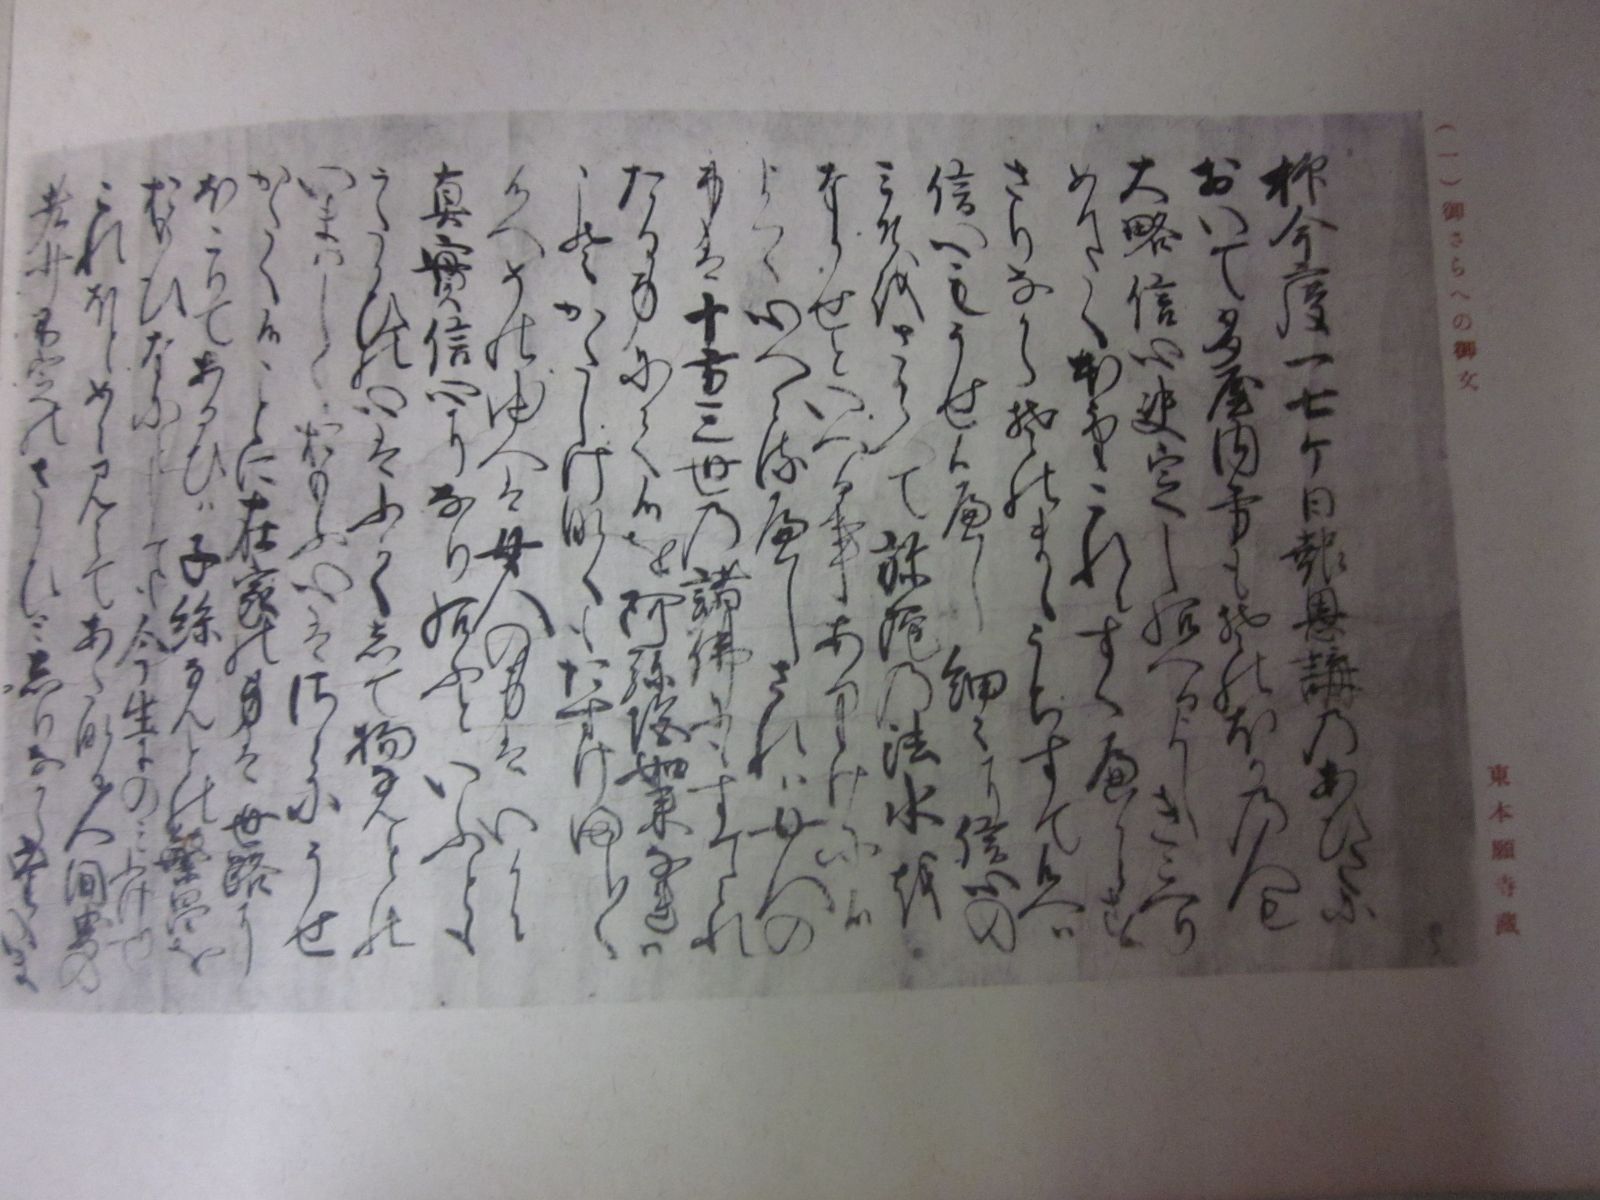 (一)御さらへの御文
東本願寺蔵
抑今度一七ケ日報恩講乃あひたに
おいて多屋内方もそのほかの人も
大略信心決定し給へるよしきこへ
めてたく本望これにすくへからす
さりなからそのまゝうちすて候へハ
信心もうせ候へし細々に信心の
ミそをさらへて弥陀乃法水を
なかせといへる事ありけに候
心へらるへしされハ女人の
身は十方三世乃諸佛にもすてられ
たる身にて候を阿弥陀如来なれハ
こそかたしけなくもたすけ
候へそのゆへは女人の身はいかに
真實信心になり給ふといふとも
うたかひの心はふかくして物なんとの
いまはしくおもふ心はさらにうせ
かたく候ことに在家の身は世路に
ほこりてあるひハ子孫なんとの繁昌を
ねかひ今生にのミふけり
これほとめにみえてあたなる人間界の
老少不定のさかひとしりなから